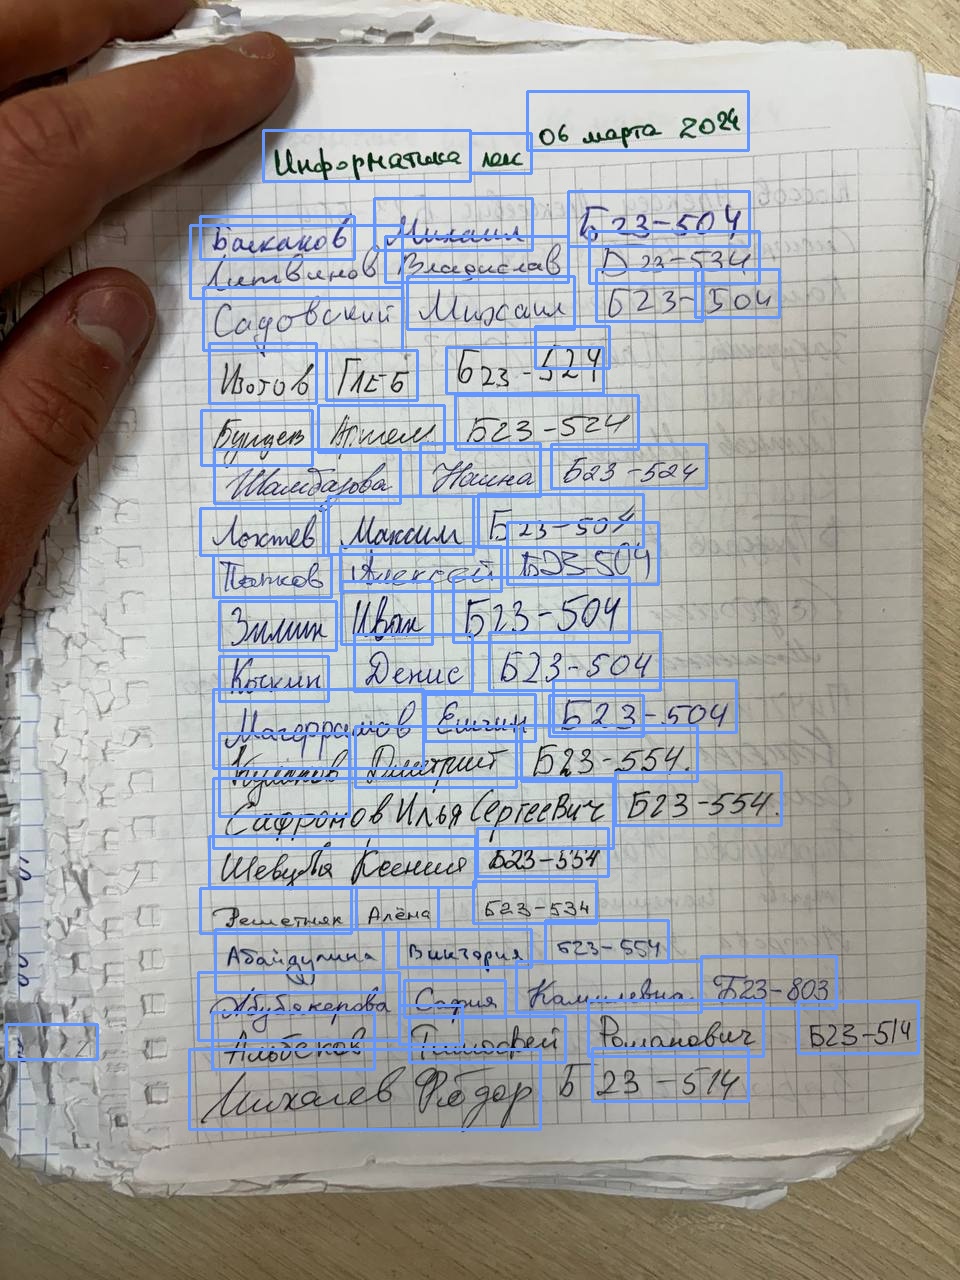 Информатика лек 06 марта 2024
Балканов Михаил Б23-504
Литвинов Владислав Б23-534
Садовский Михаил Б23-504
Изотов Глеб Б23-524
Бурцев Артем Б23-524
Шамбазова Наина Б23-524
Локтев Максим Б23-504
Попков Алексей Б23-504
Зилин Иван Б23-504
Денис Б23-504
Магеррамов Елшин Б23-504
Куликов Дмитрий Б23-554.
Сафронов Илья Сергеевич Б23-554.
Ксения Б23-554
Решетняк Алёна Б23-534
Абайдулина Виктория Б23-554
Абубакерова София Камилевна Б23-803
Альбеков Тимофей Романович Б23-514
Михалев Фёдор Б23-514